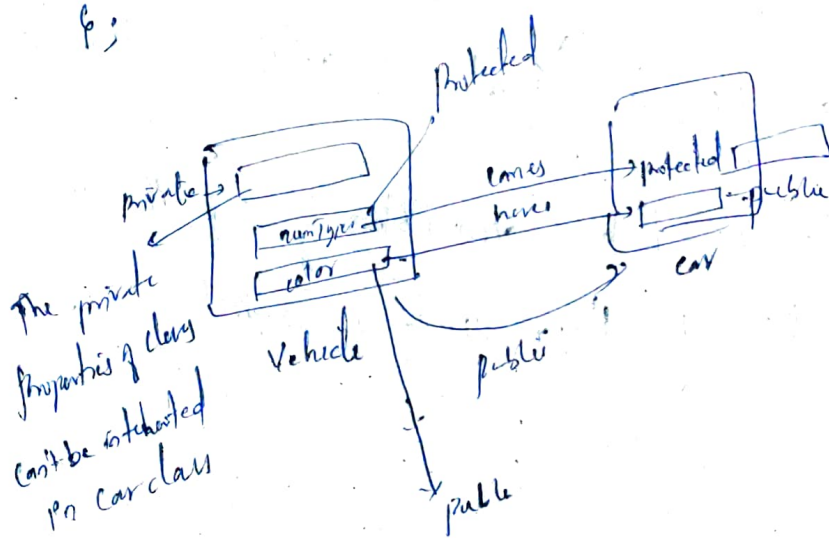 };
Protected
private
numTyres
color
Vehicle
comes
here
protected
public
car
public
public
The private
properties of class
can't be inherited
in car class